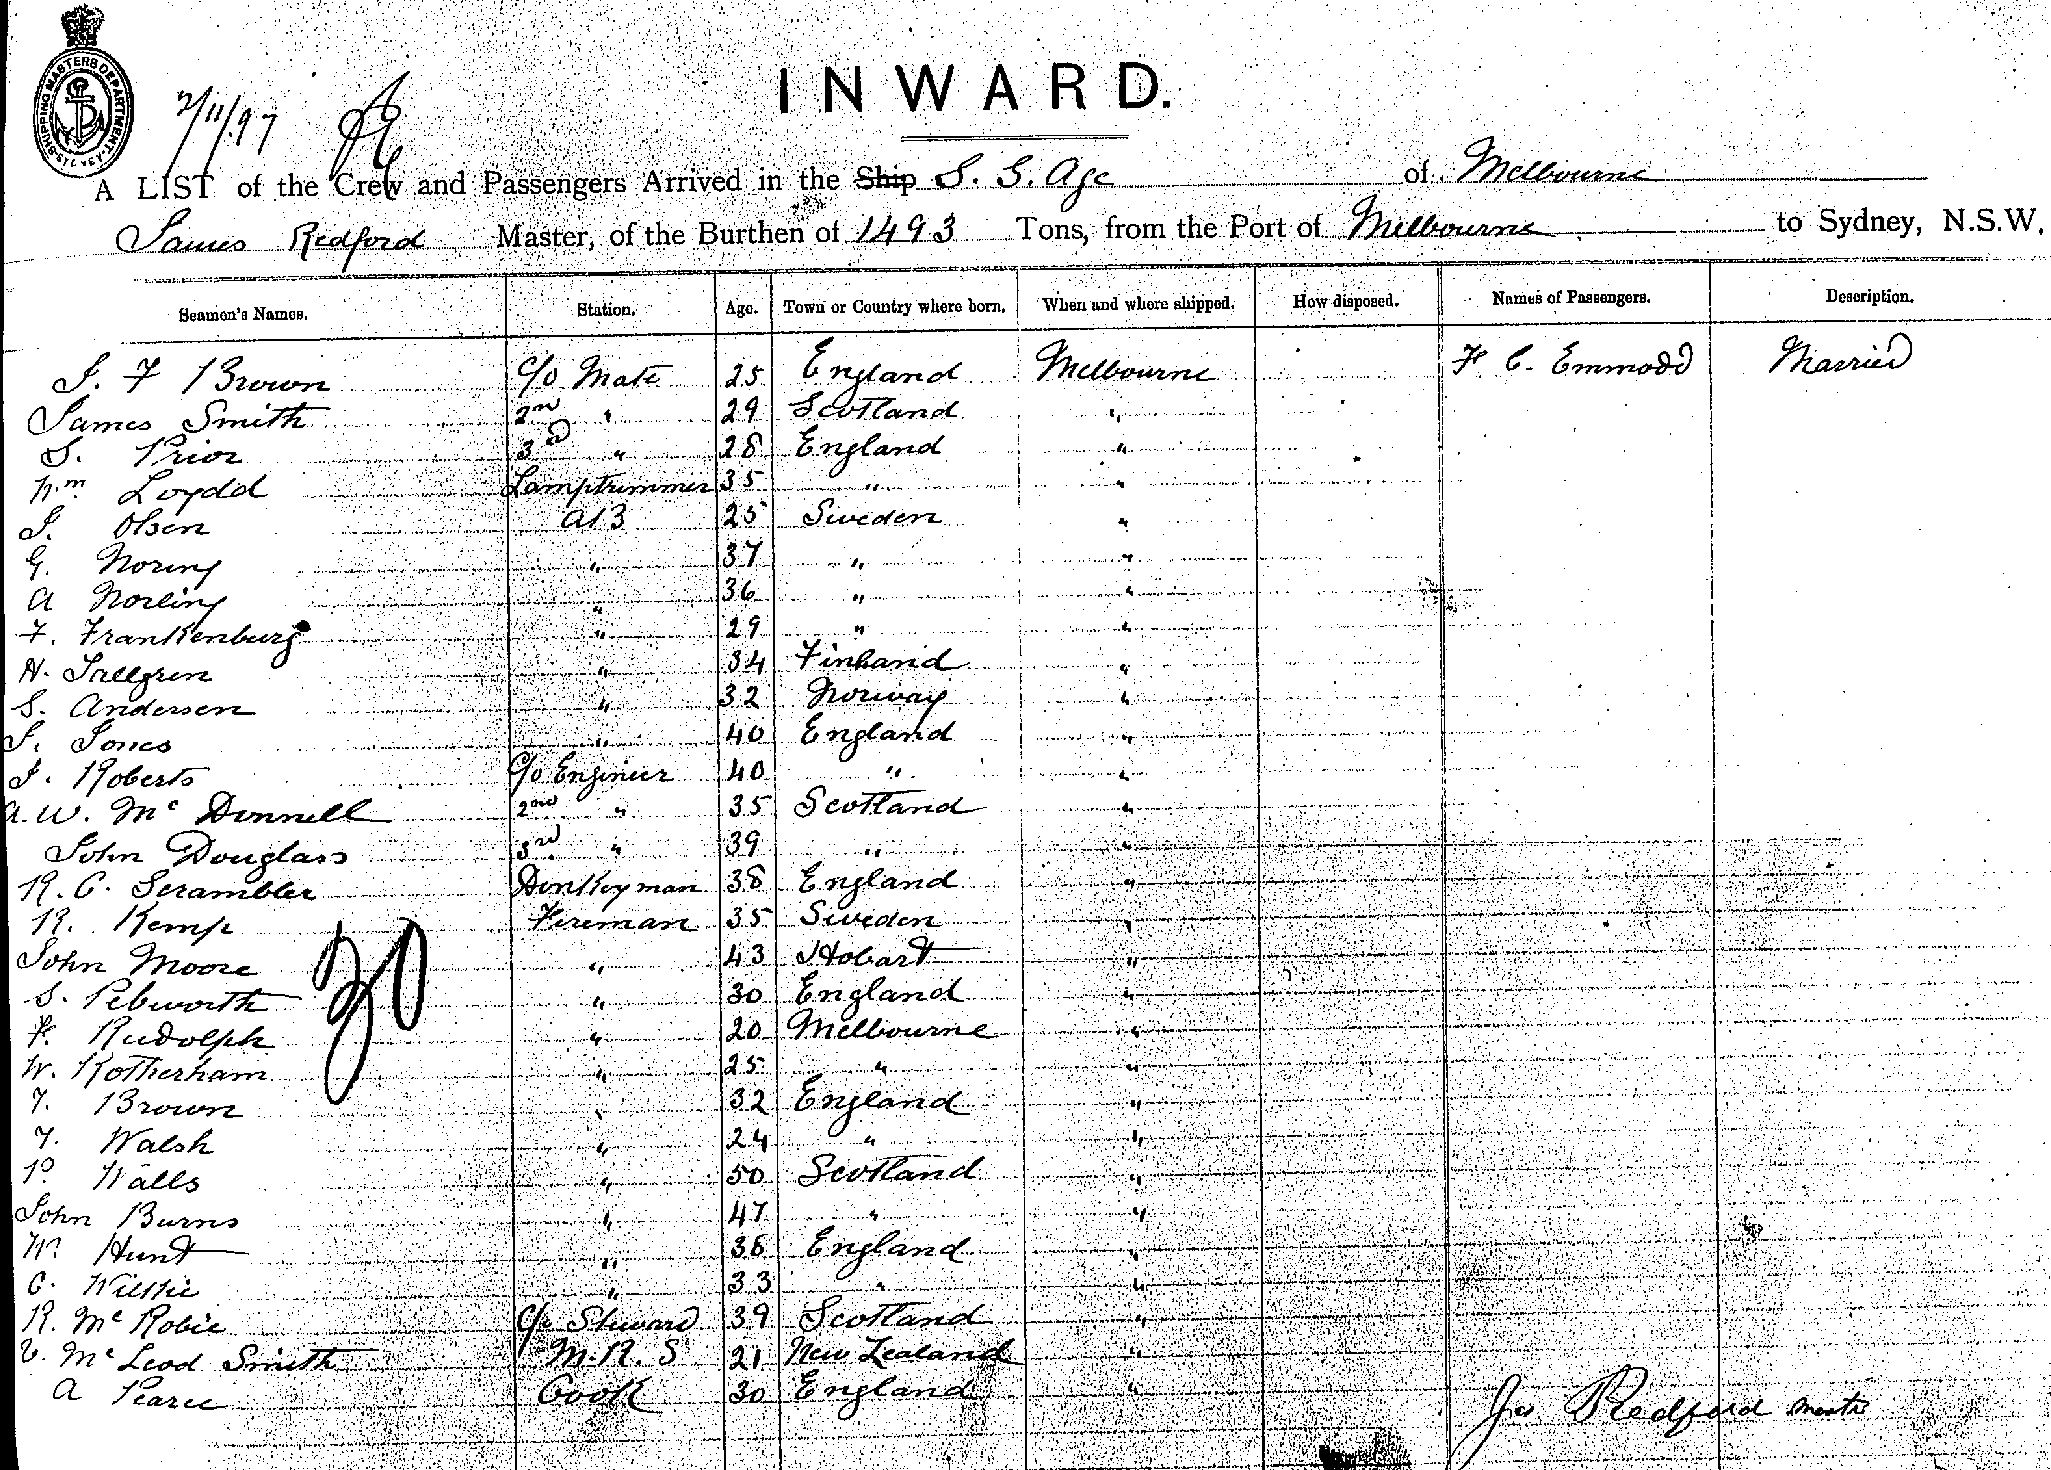 SHIPPING MASTERS DEPARTMENT SYDNEY
2/11/97
INWARD.
A LIST of the Crew and Passengers Arrived in the Ship S. S. Age of Melbourne
James Redford Master, of the Burthen of 1493 Tons, from the Port of Melbourne to Sydney, N.S.W.
Seamen's Names. Station. Age. Town or Country where born. When and where shipped. How disposed. Names of Passengers. Description.
J. F Brown C/o Mate 25 England Melbourne F C. Emmodd Married
James Smith 2nd " 29 Scotland "
S. Prior 3d " 28 England "
Wm Loydd Lamptrimmer 35 " "
J. Olsen AB 25 Sweden "
G. Noring " 37 " "
A Norling " 36 " "
F. Frankenburg " 29 " "
H. Sallgren " 34 Finland "
S. Andersen " 32 Norway "
J. Jones " 40 England "
J. Roberts C/o Engineer 40 " "
A. W. Mc Donnell 2nd " 35 Scotland "
John Douglass 3rd " 39 " "
R. C. Scrambler Donkeyman 38 England "
R. Kemp Fireman 35 Sweden "
John Moore " 43 Hobart "
S. Pebworth " 30 England "
F. Rudolph " 20 Melbourne "
W. Rotherham " 25 " "
T. Brown " 32 England "
T. Walsh " 24 " "
P. Walls " 50 Scotland "
John Burns " 47 " "
W. Hunt " 38 England "
C. Wilkie " 33 " "
R. Mc Robie C/o Steward 39 Scotland "
V. Mc Leod Smith M.R.S 21 New Zealand "
A Pearce Cook 30 England "
30
Jas Redford Master